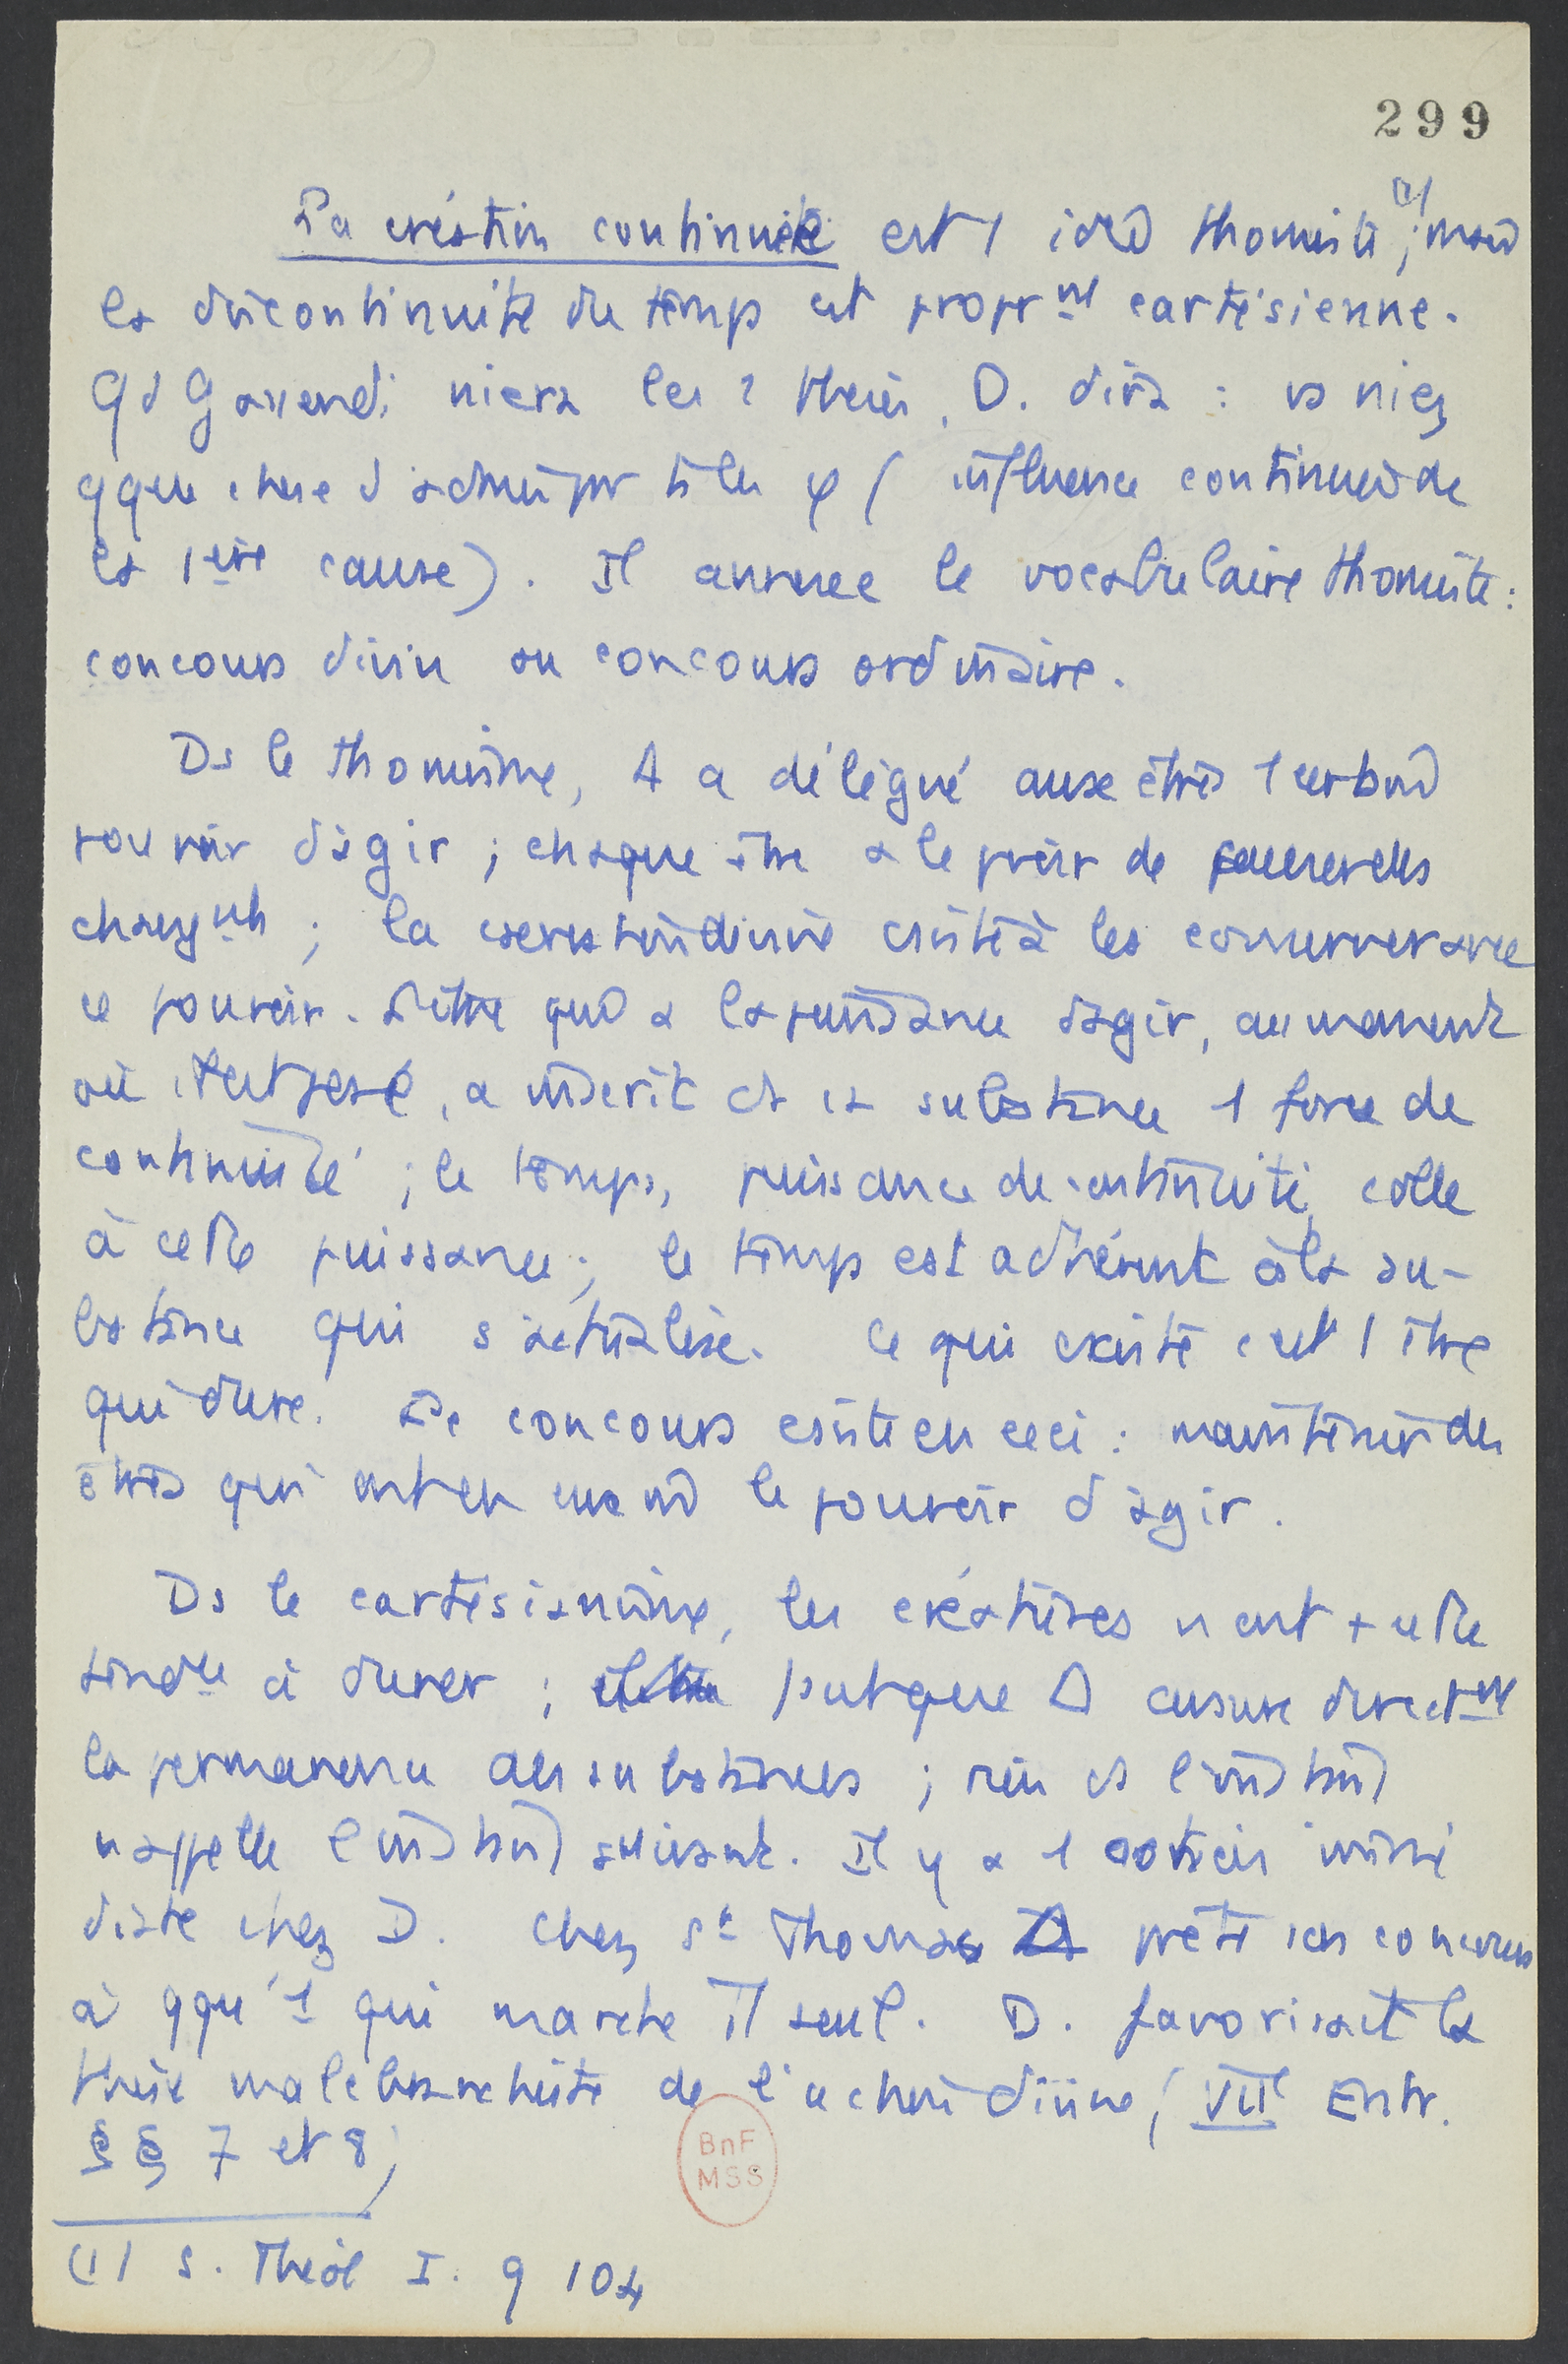 299
La création continuée est 1 idée thomiste (1); mais
la discontinuité du temps est proprnt cartésienne.
Qd Gassendi niera les 2 thèses, D. dira : vs niez
qque chose d'admis par ts les φ ( influence continue de
la 1ère cause). Il annexe le vocabulaire thomiste :
concours divin ou concours ordinaire.
Ds le thomisme, Δ a délégué aux êtres 1 certain
pouvoir d'agir ; chaque être a le pvoir de
changnts ; la consiste à les conserver avec
ce pouvoir. L'être qui a la puissance d'agir, au moment
où il est posé, a inscrit ds sa substance 1 force de
continuité ; le temps, puissance de continuité, colle
à cette puissance ; le temps est adhérent à la su-
bstance qui s'actualise. Ce qui existe c'est l'être
qui dure. Le concours csiste en ceci : maintenir des
êtres qui ont en eux le pouvoir d'agir.
Ds le cartésianisme, les créatures n'ont + cette
tendce à durer ; il faut que Δ assure directnt
la permanence des substances ; rien ds l'instant
n'appelle l'instant suivant. Il y a 1 création immé
diate chez D. Chez St Thomas Δ prête son concours
à qqu'1 qui marche Tt seul. D. favorisait la
thèse malebranchiste de l'action divine, ( VIIe Entr.
§ § 7 et 8)
(1) S. Théol I. q 104
BnF
MSS